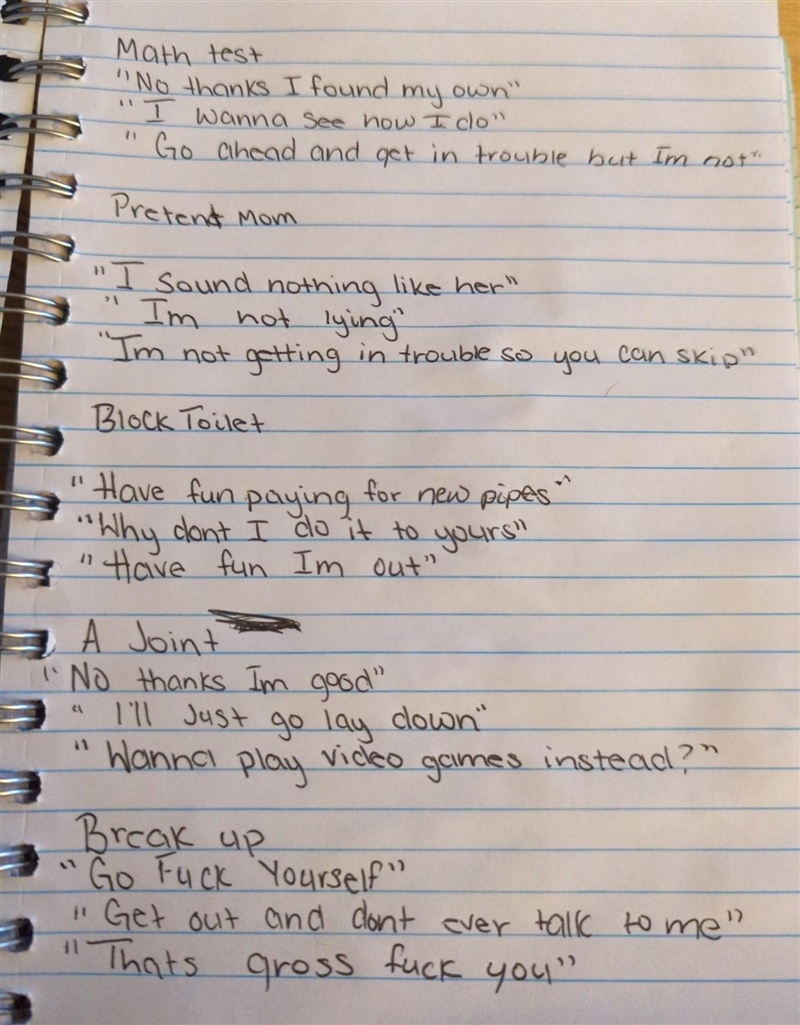 Math test
"No thanks I found my own"
"I wanna see how I do"
"Go ahead and get in trouble but Im not"
Pretend Mom
"I sound nothing like her"
"Im not lying"
"Im not getting in trouble so you can skip"
Block Toilet
"Have fun paying for new pipes"
"Why dont I do it to yours"
"Have fun Im out"
A Joint
"No thanks Im good"
"I'll Just go lay down"
"Wanna play video games instead?"
Break up
"Go Fuck Yourself"
"Get out and dont ever talk to me"
"Thats gross fuck you"